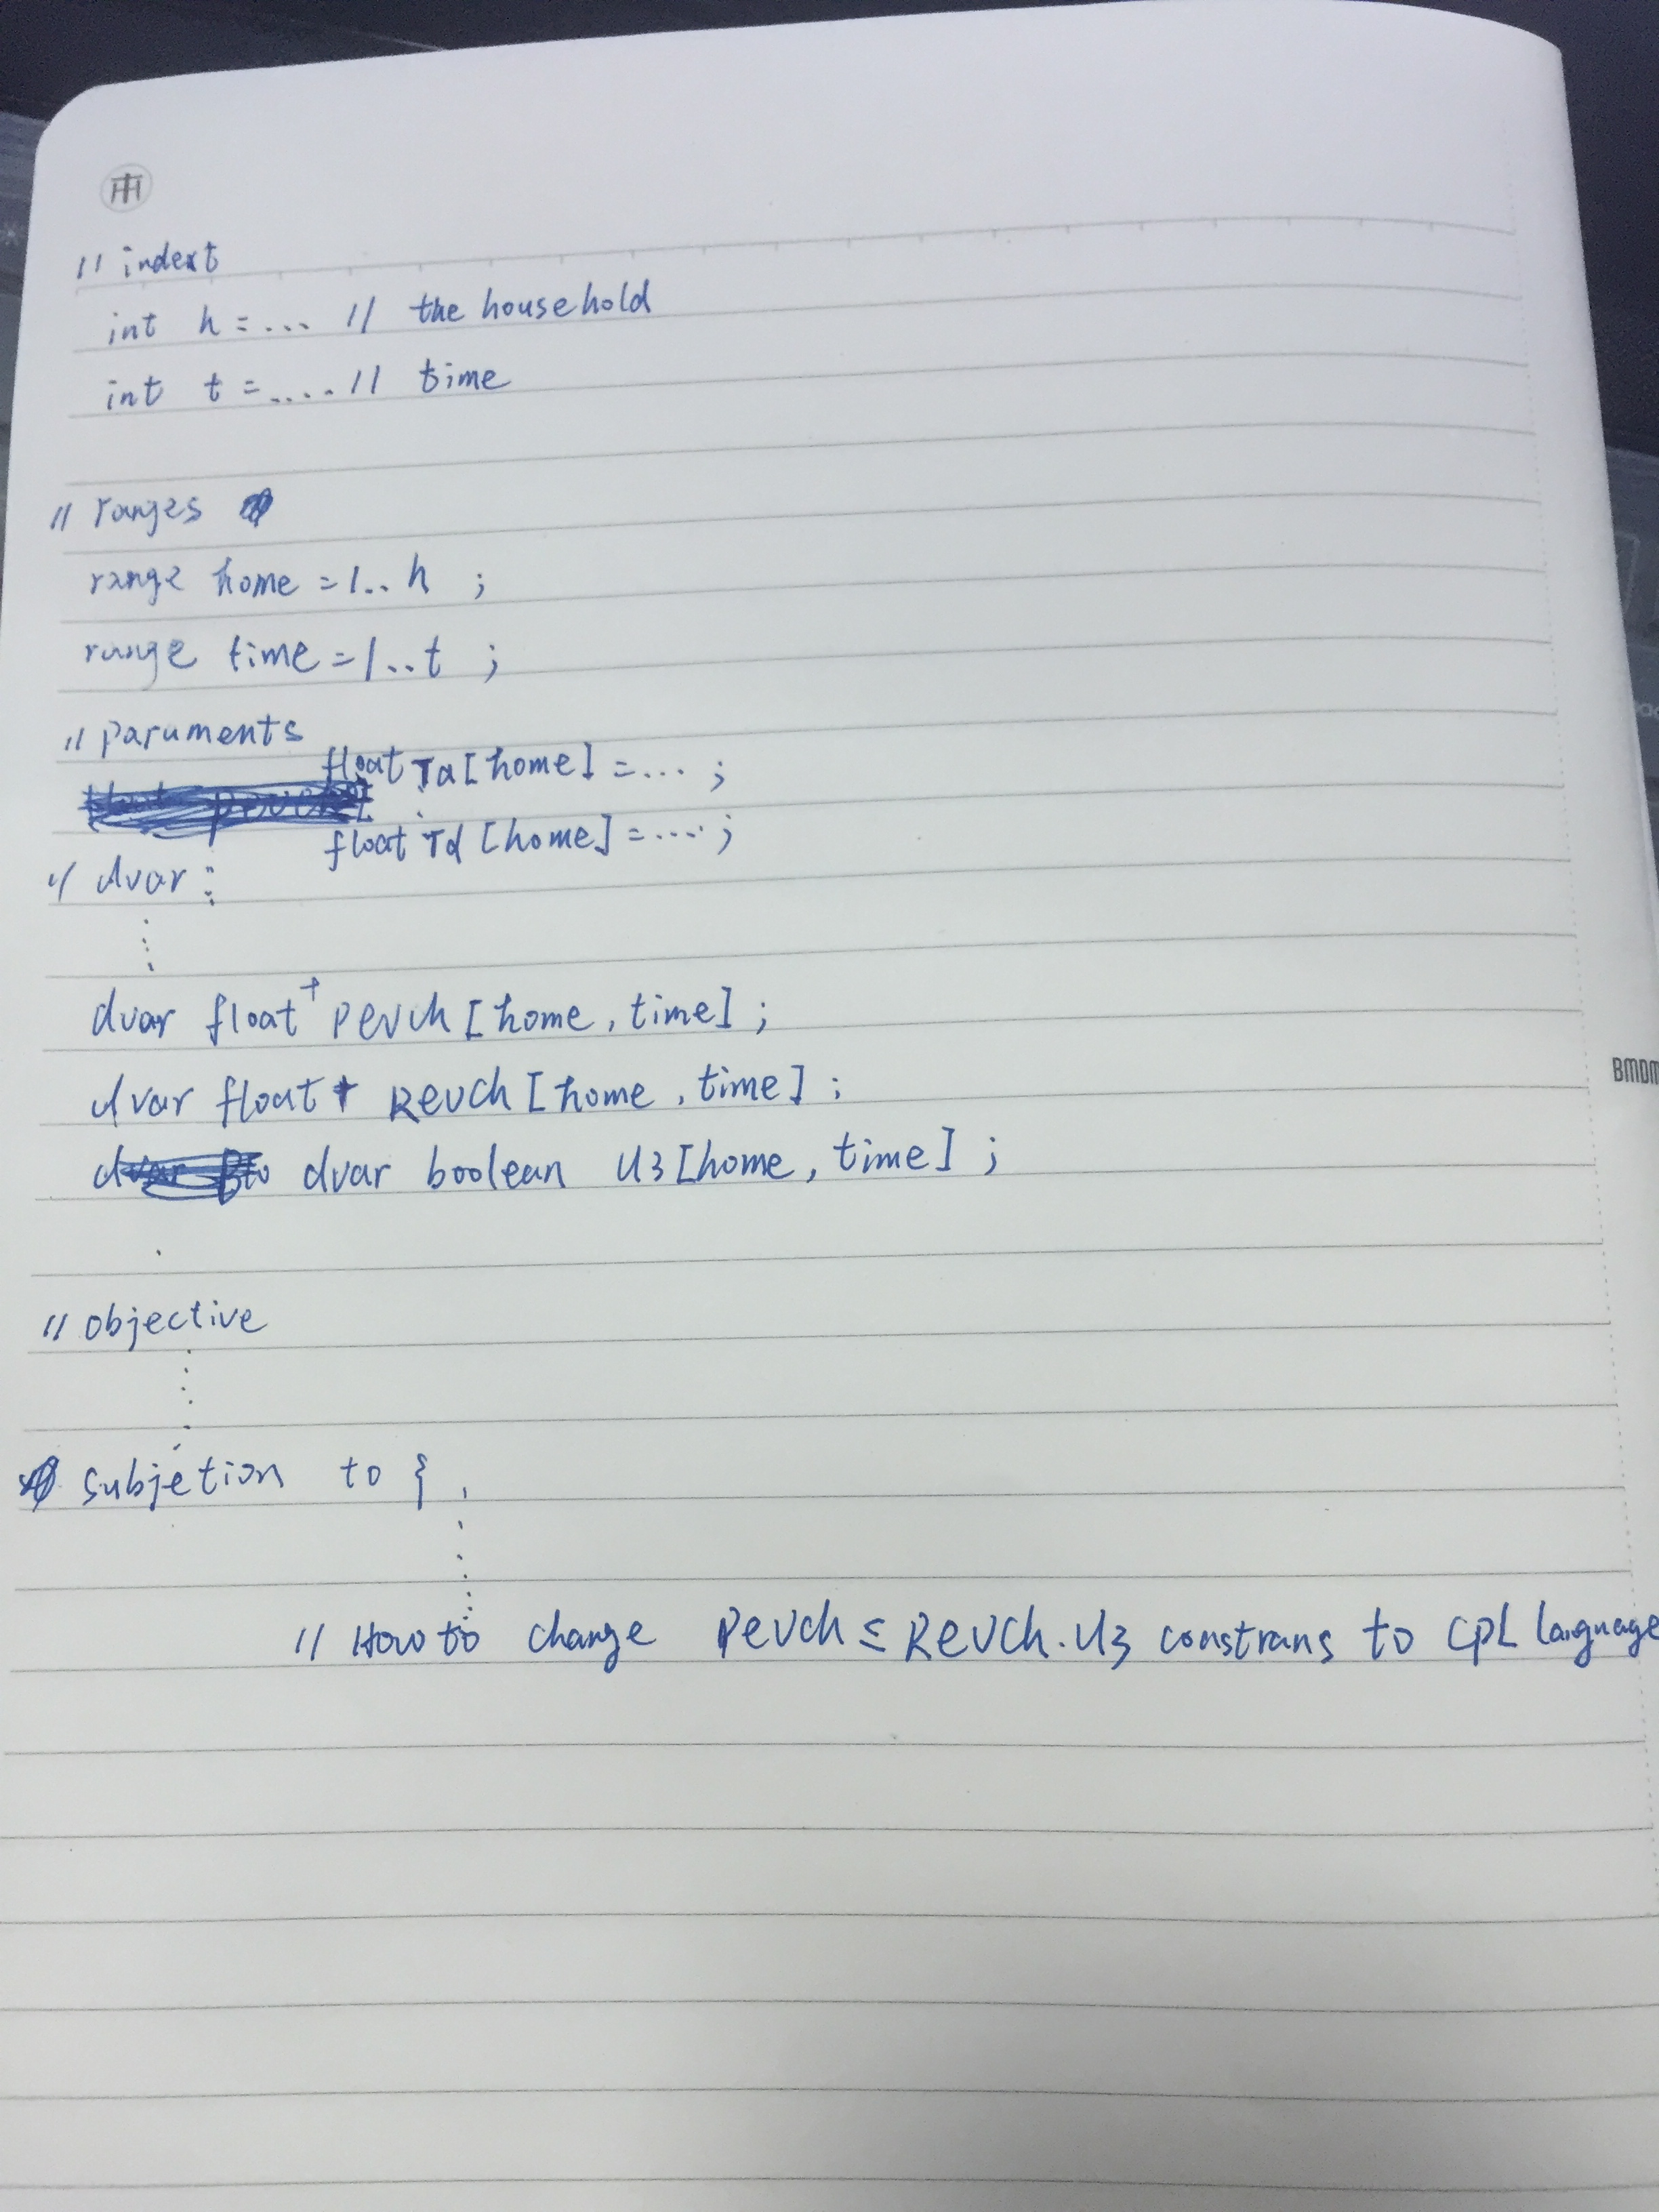 // indext
int h = ... // the household
int t = .... // time
// ranges
range home = 1..h ;
range time = 1..t ;
// paruments
float Ta [home] = ... ;
float Td [home] = .... ;
// dvar :
dvar float+ pevch [home, time] ;
dvar float+ Revch [home, time] ;
dvar boolean u3 [home, time] ;
BMDM
// objective
subjetion to {
// How to change Pevch ≤ Revch.u3 constrans to CPL language